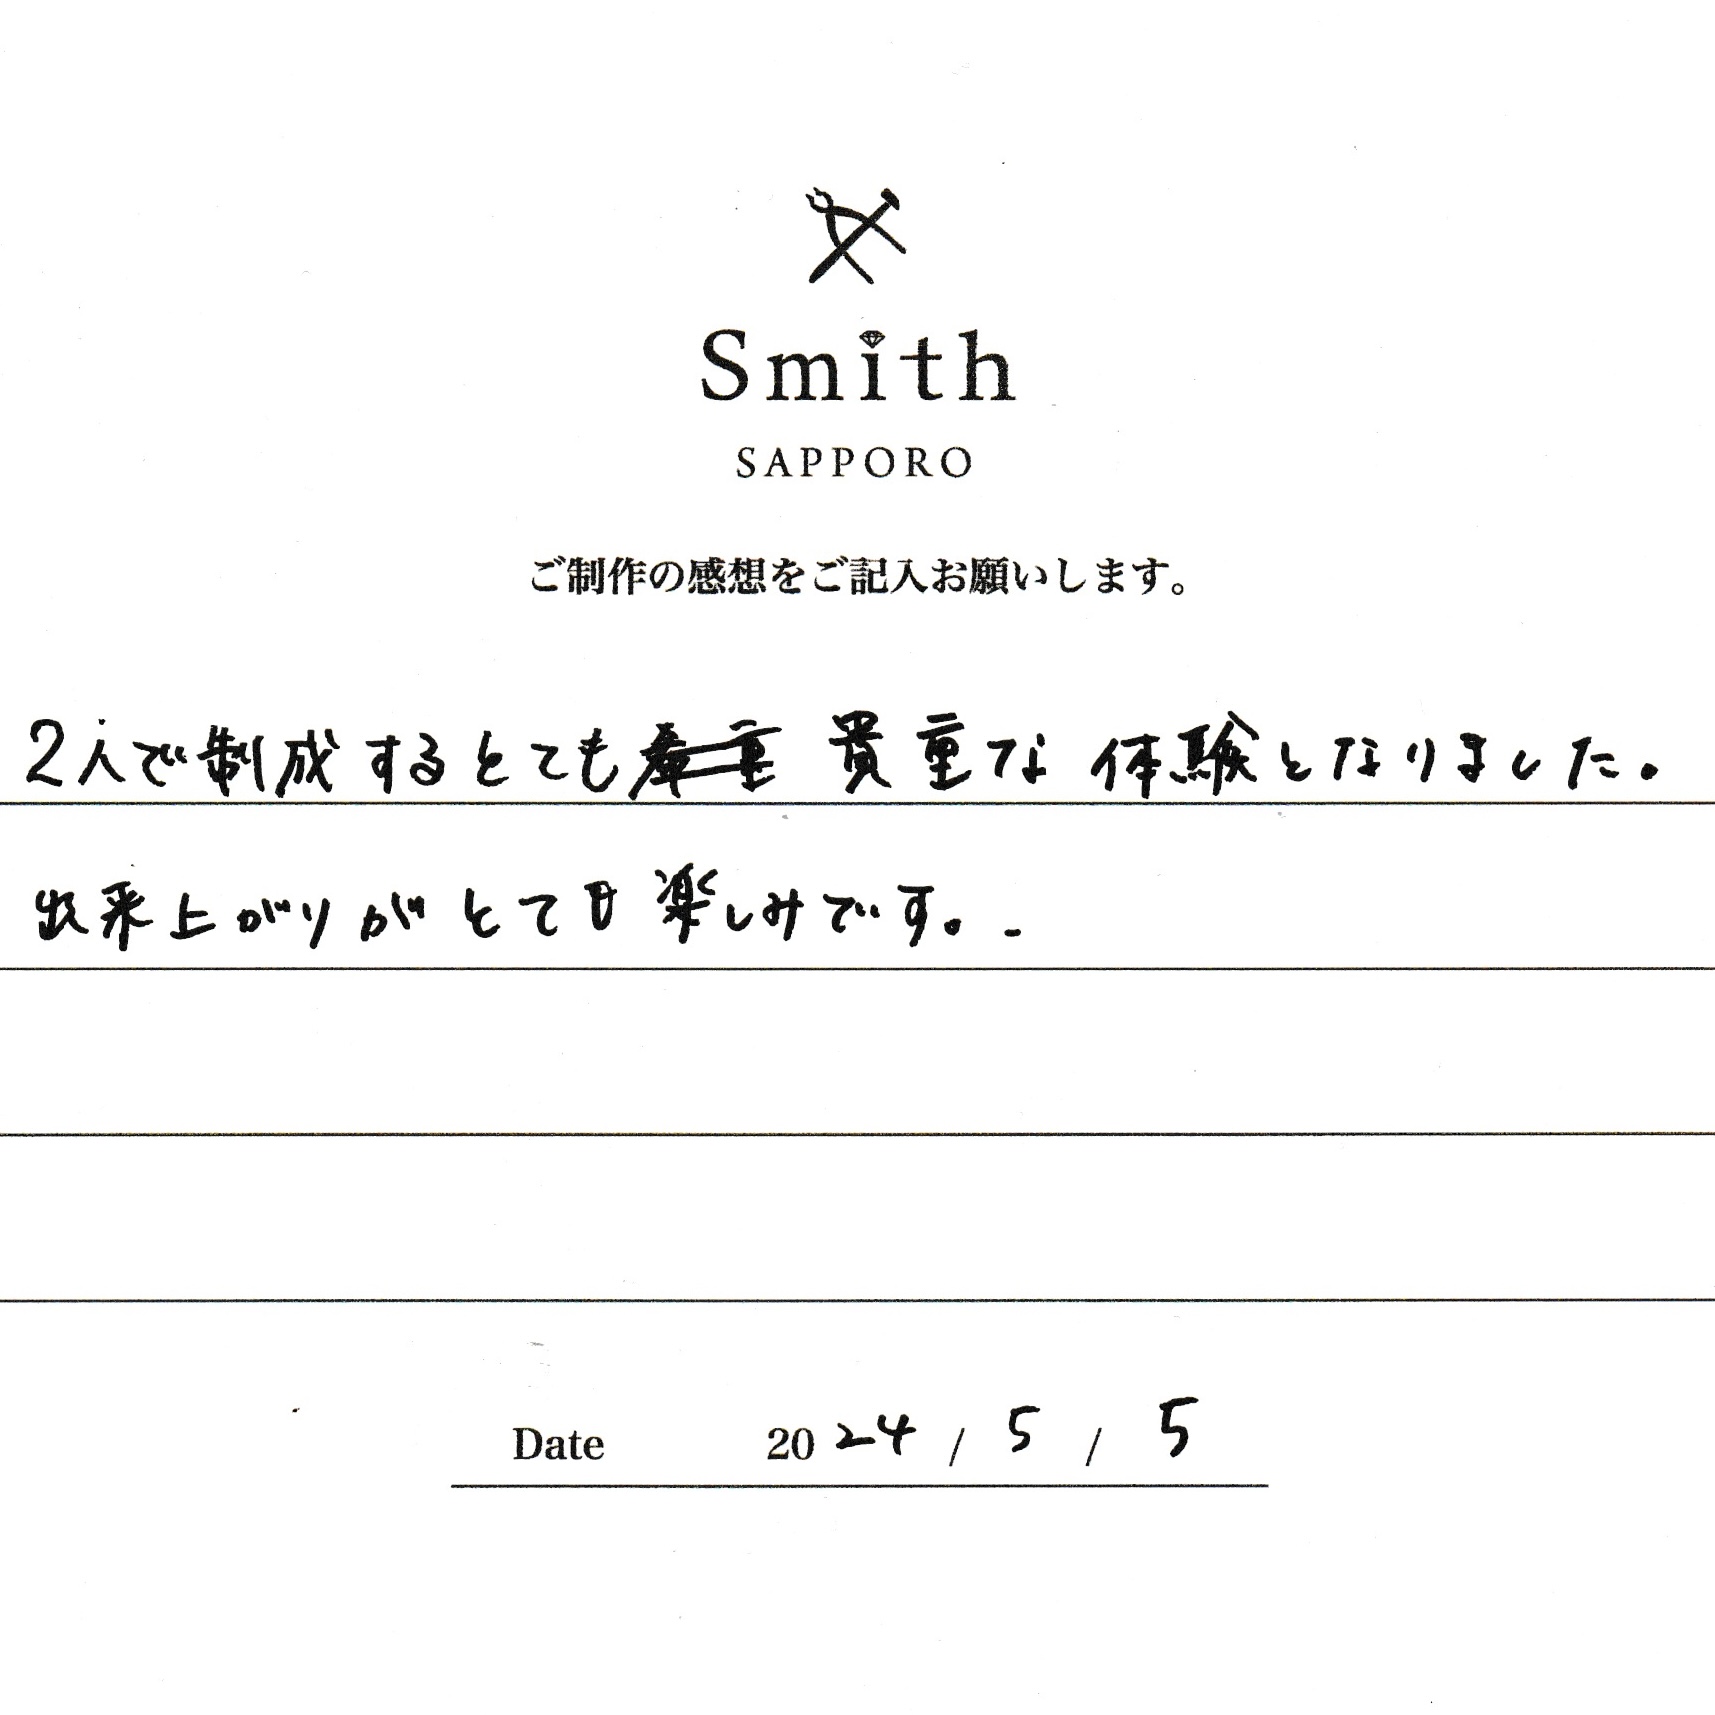 Smith
SAPPORO
ご制作の感想をご記入お願いします。
2人で制成するとても貴重な体験となりました。
出来上がりがとても楽しみです。
Date 2024 / 5 / 5